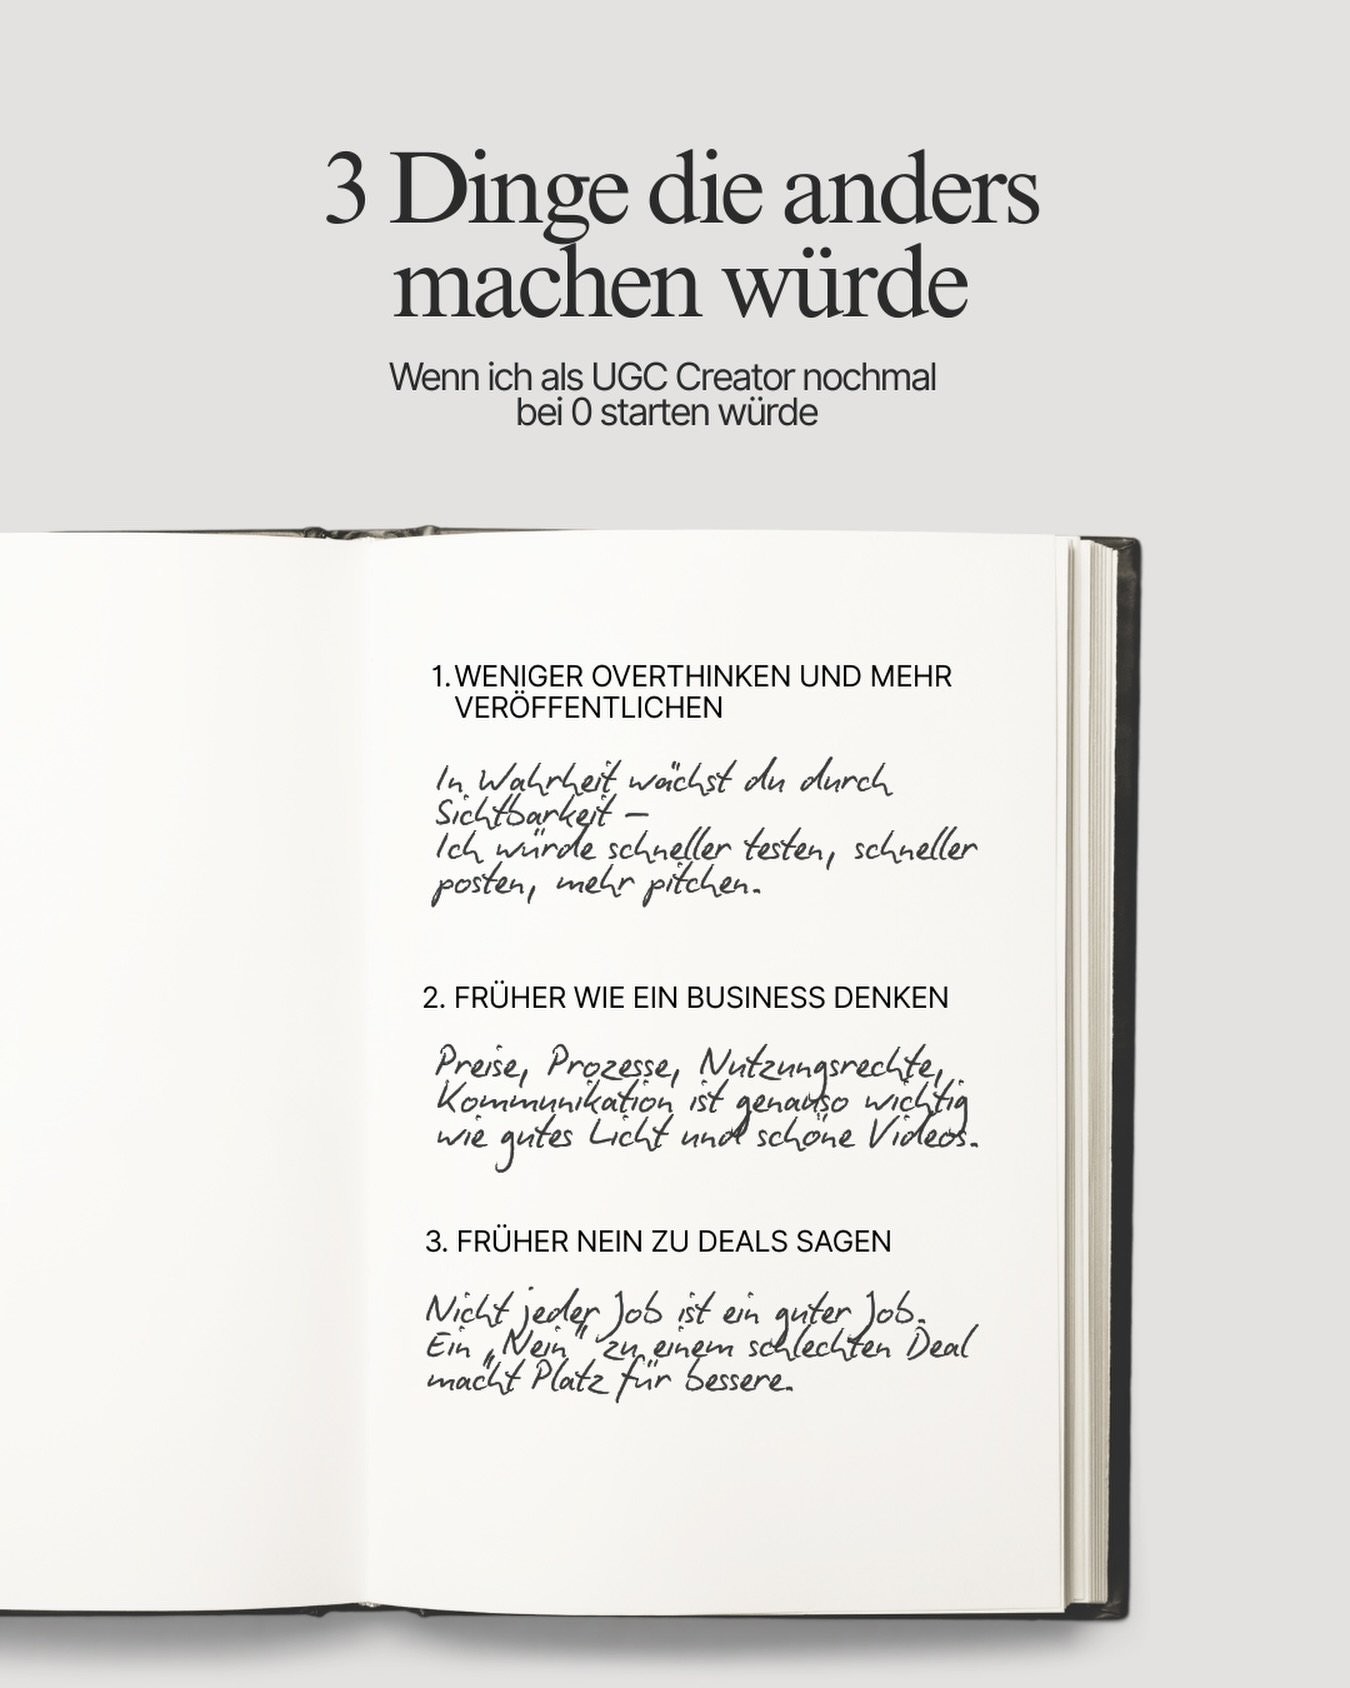 3 Dinge die anders
machen würde
Wenn ich als UGC Creator nochmal
bei 0 starten würde
1. WENIGER OVERTHINKEN UND MEHR
VERÖFFENTLICHEN
In Wahrheit wächst du durch
Sichtbarkeit –
Ich würde schneller testen, schneller
posten, mehr pitchen.
2. FRÜHER WIE EIN BUSINESS DENKEN
Preise, Prozesse, Nutzungsrechte,
Kommunikation ist genauso wichtig
wie gutes Licht und schöne Videos.
3. FRÜHER NEIN ZU DEALS SAGEN
Nicht jeder Job ist ein guter Job.
Ein „Nein" zu einem schlechten Deal
macht Platz für bessere.